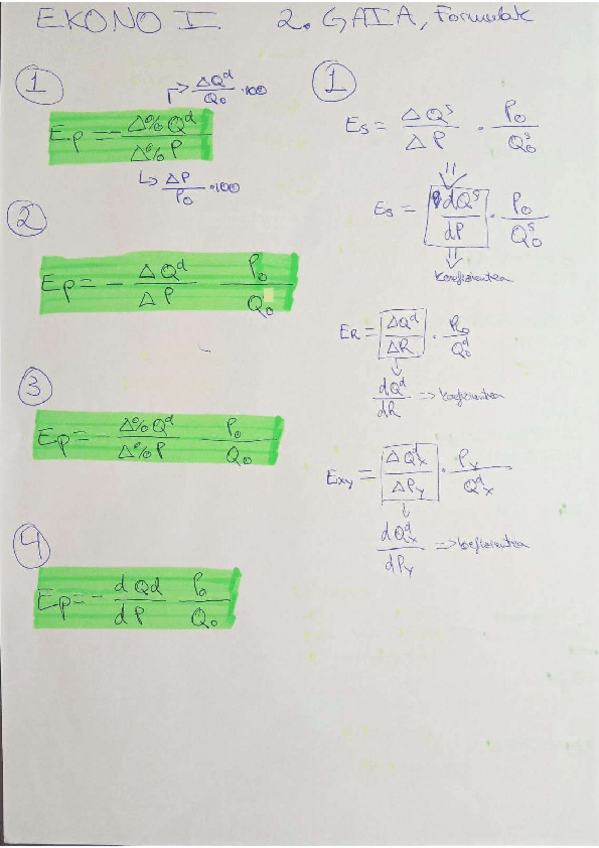 EKONO I. 2. GAIA, Formulak
1
→ ΔQᵈ/Q₀ · 100
Ep = - Δ%Qᵈ/Δ%P
↳ ΔP/P₀ · 100
2
Ep = - ΔQᵈ/ΔP P₀/Q₀
3
Ep = - Δ%Qᵈ/Δ%P P₀/Q₀
4
Ep = - dQd/dP P₀/Q₀
1
Es = ΔQˢ/ΔP · P₀/Qˢ₀
Es = dQˢ/dP · P₀/Qˢ₀
koefizientea
ER = ΔQᵈ/ΔR · R₀/Qᵈ₀
↓
dQᵈ/dR ⇒ koefizientea
Exy = ΔQᵈx/ΔPy · Py/Qᵈx
↓
dQᵈx/dPy ⇒ koefizientea